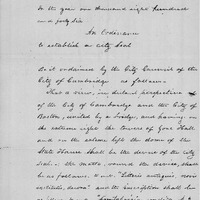 In the year one thousand eight hundred
and forty six
An Ordinance
to establish a city seal
Be it ordained by the City Council of the
City of Cambridge as follows.
That a view, in distant perspective
of the City of Cambridge and the City of
Boston, united by a bridge, and having on
the extreme right the towers of Gore Hall
and on the extreme left the dome of the
State House shall be the device of the city
seal: the motto, round the device, shall
be as follows, to wit: "Literis antiquis, novis
institutis, decora" and the inscription shall be